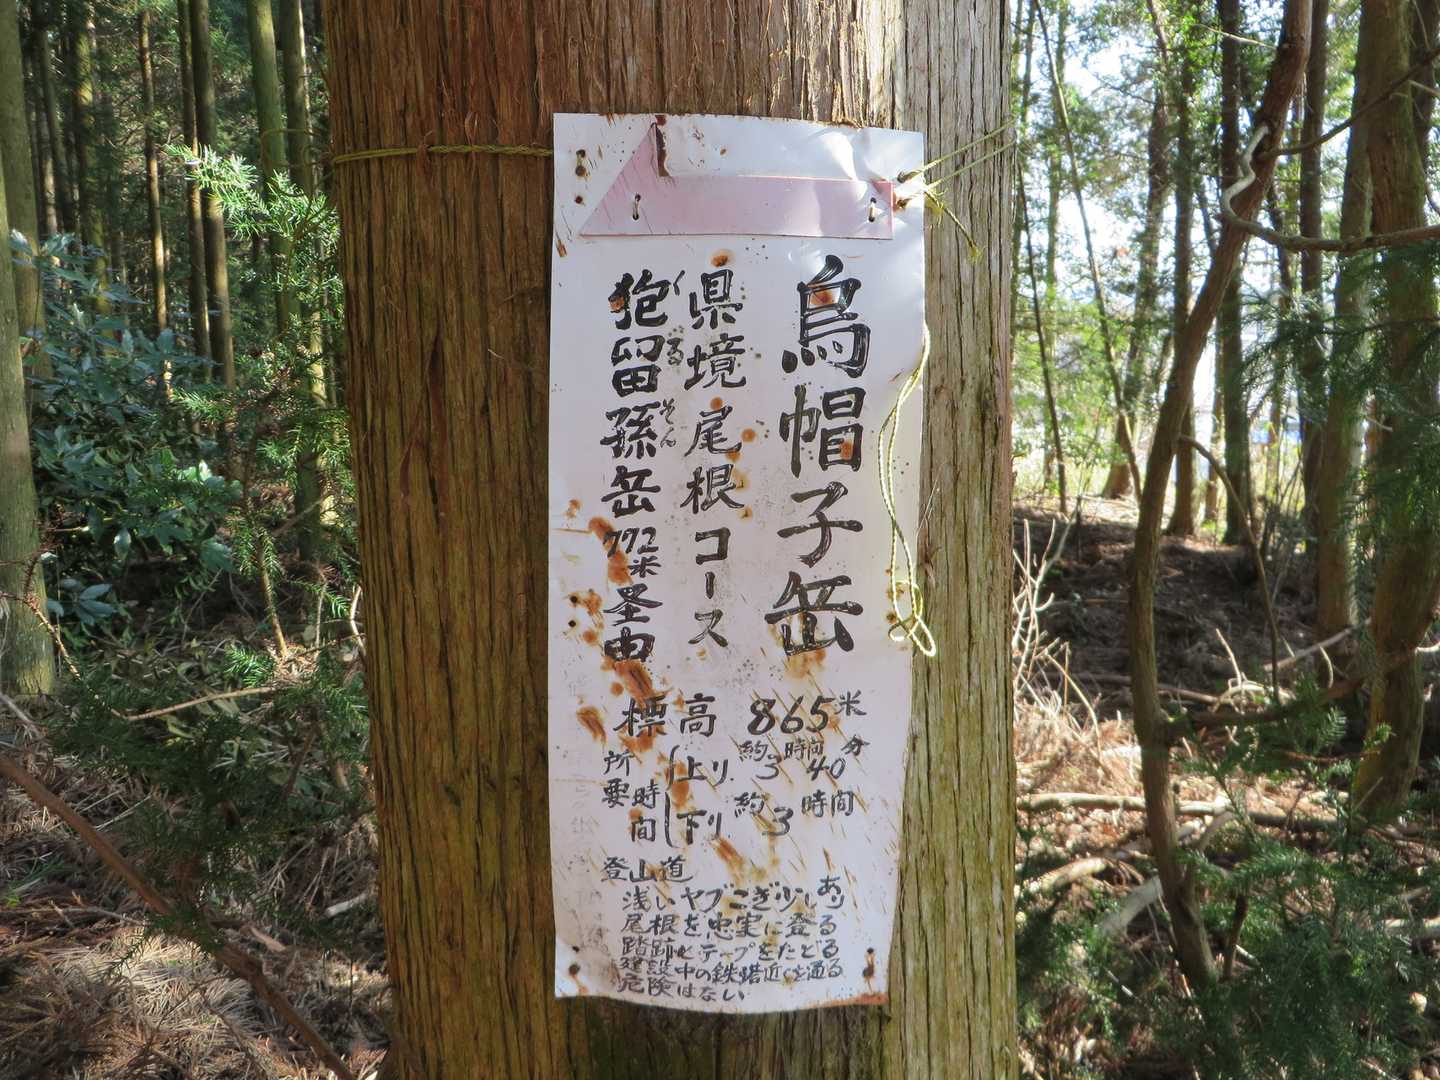 烏帽子岳
県境尾根コース
狍留孫岳772米経由
くるそん
標高 865米
所要時間
上り 約3時間40分
下り 約3時間
登山道
浅いヤブこぎ少しあり
尾根を忠実に登る
踏跡とテープをたどる
建設中の鉄塔近くを通る
危険はない